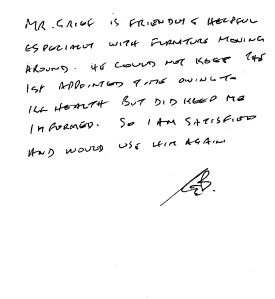 MR. GRIGG IS FRIENDLY & HELPFUL
ESPECIALLY WITH FURNITURE MOVING
AROUND. HE COULD NOT KEEP THE
1ST APPOINTED TIME OWING TO
ILL HEALTH BUT DID KEEP ME
INFORMED. SO I AM SATISFIED
AND WOULD USE HIM AGAIN